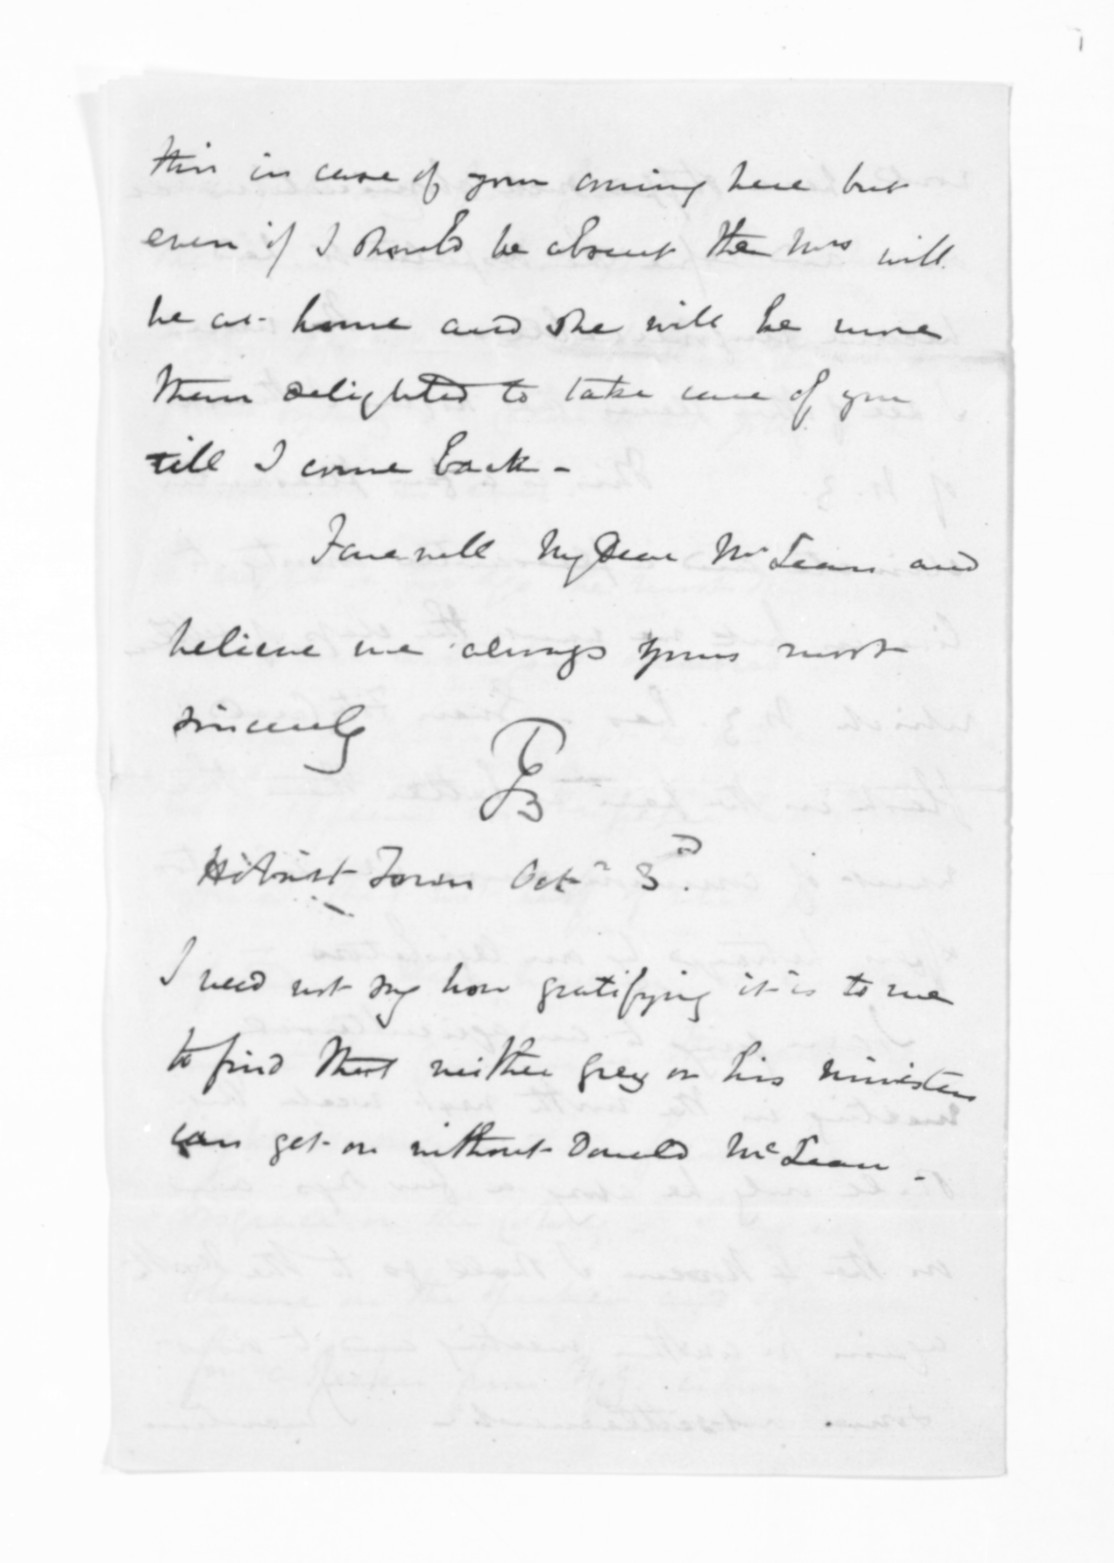 this in case of your coming here but
even if I should be absent the Mrs will
be at home and she will be more
than delighted to take care of you
till I come back -
Farewell My Dear McLean and
believe me always yours most
sincerely
TGB
Hobart Town Octr 3rd.
I need not say how gratifying it is to me
to find that neither Grey or his ministers
can get on without Donald McLean -